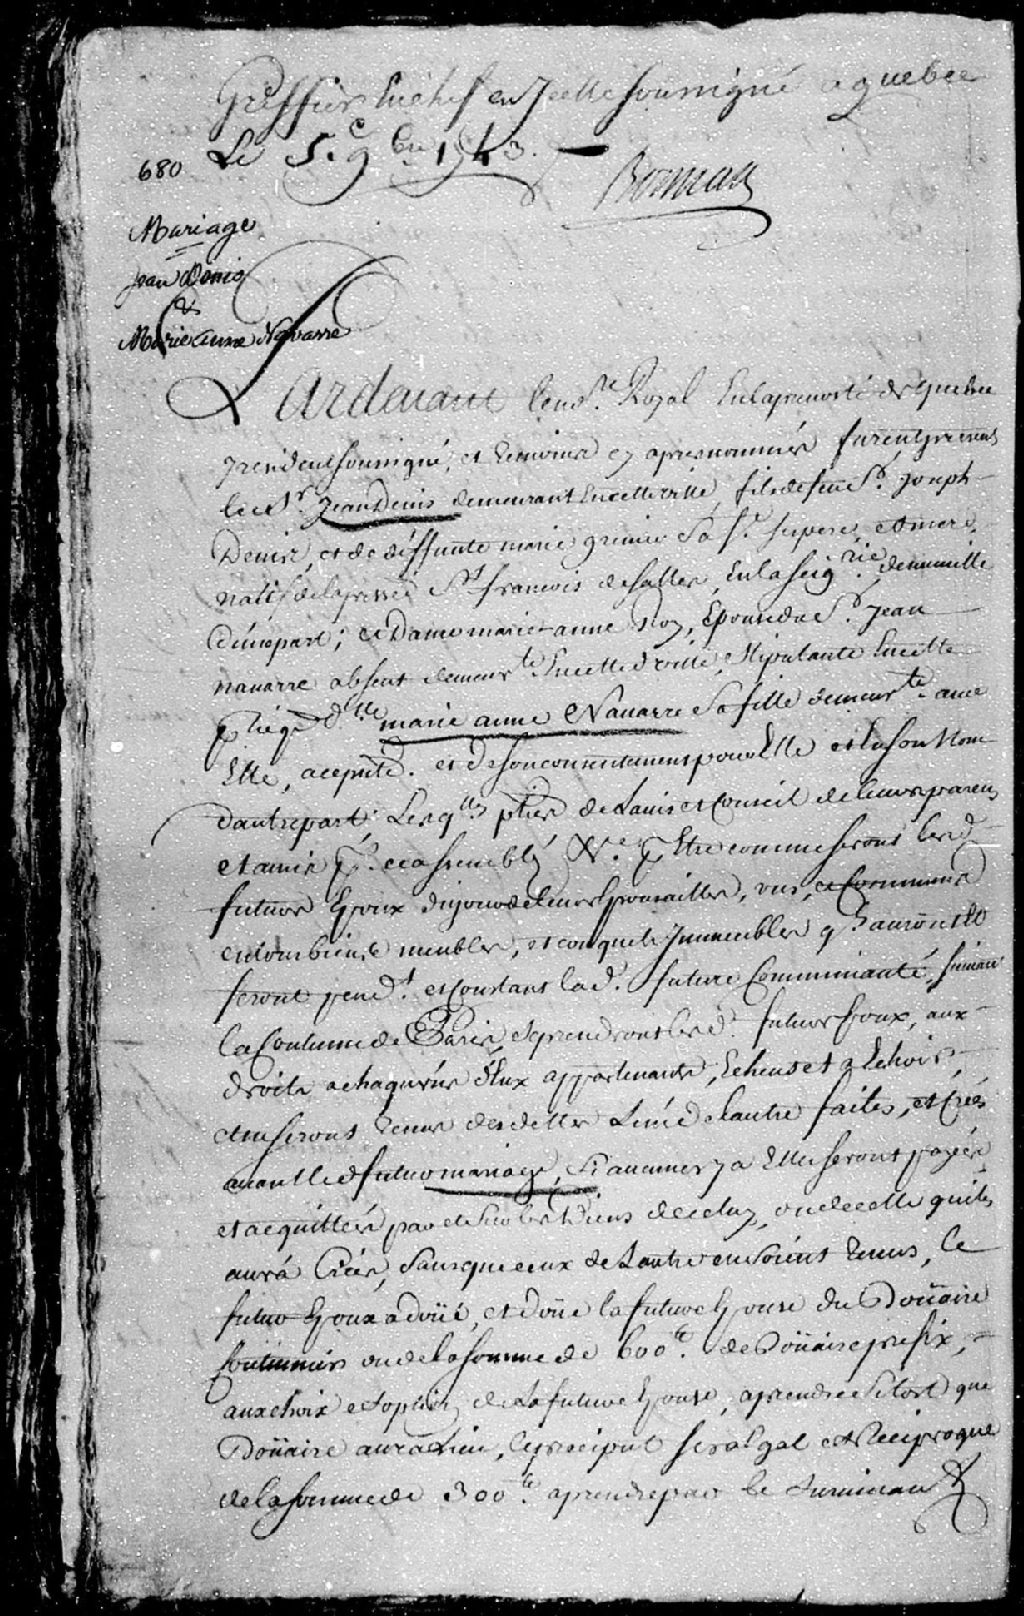 Greffier Enchef en Jcelle soussigné a quebec
Le 5.e 9bre 1743.
Boisseau
680
Mariage
Jean Denis
&
Marie anne Navarre
Pardevant le no.re Royal En la prevosté de Quebec
y residant soussigné, et temoins cy apres nommés furent presents
le S.r Jean Denis demeurant En cette ville, fils de feu S.r Joseph
Denis, et de deffunte marie grenier Sa f.e ses pere, et mere
natif de la parroisse S.t francois de salles, En la seig.rie de neuville
d'une part; et Dame marie anne Roy, Epouse du S.r Jean
navarre absent demeur.te En cette d.e ville, stipulante En cette
d.lle marie anne Navarre Sa fille demeur.te avec
Elle, a ce pnte. et de son consentement pour Elle et En son Nom
d'autre part; Lesq.lles pties de Lavis et Conseil de leurs parens
et amis p.r ce assemblés Etre comme seront lesd.
futurs Epoux du jour de leurs Epousailles, uns, et Communs
en tous biens meubles, et conquets Jmmeubles q.ls auront et
feront pend.t et constant lad. future Communauté, suivant
la Coutume de Paris, se prendront lesd. futurs Epoux, aux
droits a chaqu'un d'Eux appartenants, Echeus et a Echoir,
et ne seront tenus des dettes L'un de l'autre faites, et Créés
avant led. futur mariage, Si aucunes y a Elles seront payées
et acquittées par et sur les biens de celuy, ou de celle qui les
aura Créés, sans que ceux de L'autre en soient tenus, Le
futur Epoux a doüé, et doüe la future Epouse du Doüaire
Coutumier ou de la somme de 600.lt de Doüaire prefix,
aux choix et option de La future Epouse, a prendre Sitost que
Doüaire aura Lieu, le preciput sera Egal et Reciproque
de la somme de 300.lt a prendre par le Survivant &